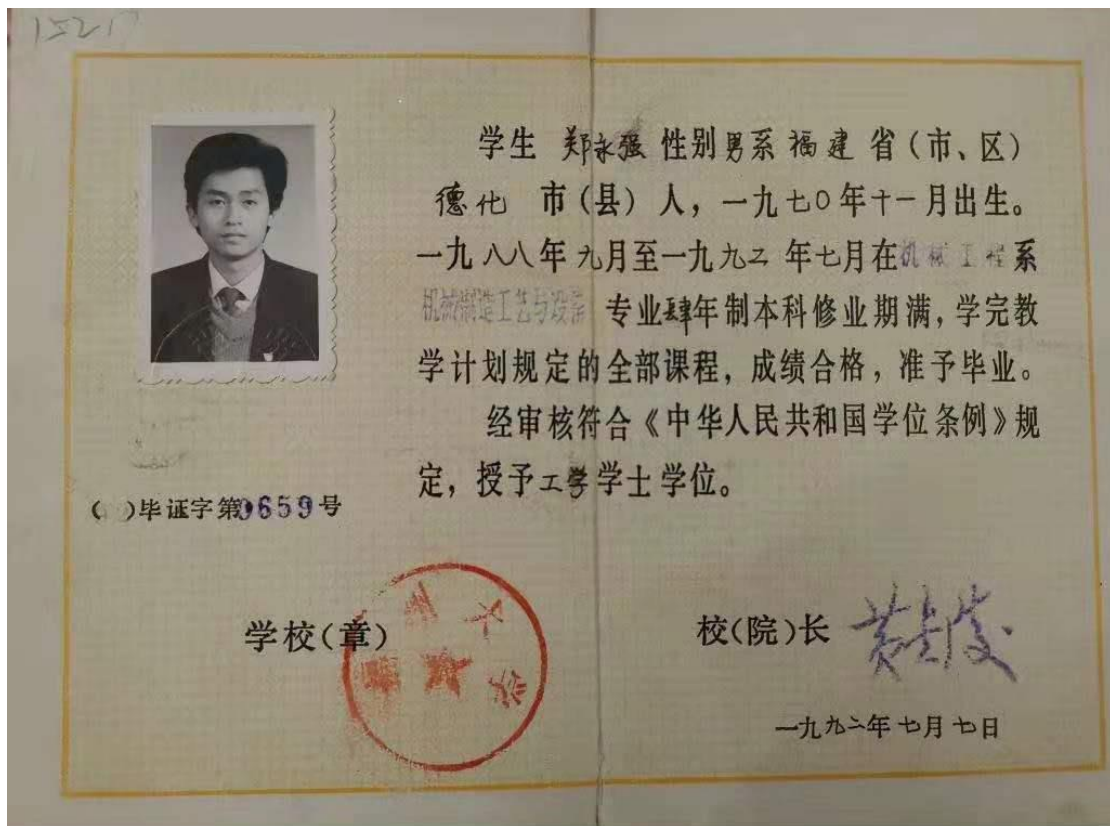 学生 郑永强 性别男系福建省(市、区)
德化 市(县)人,一九七〇年十一月出生。
一九八八年九月至一九九二年七月在机械工程系
机械制造工艺与设备 专业肆年制本科修业期满,学完教
学计划规定的全部课程,成绩合格,准予毕业。
经审核符合《中华人民共和国学位条例》规
定,授予工学学士学位。
( )毕证字第0659号
学校(章)
校(院)长
一九九二年七月七日